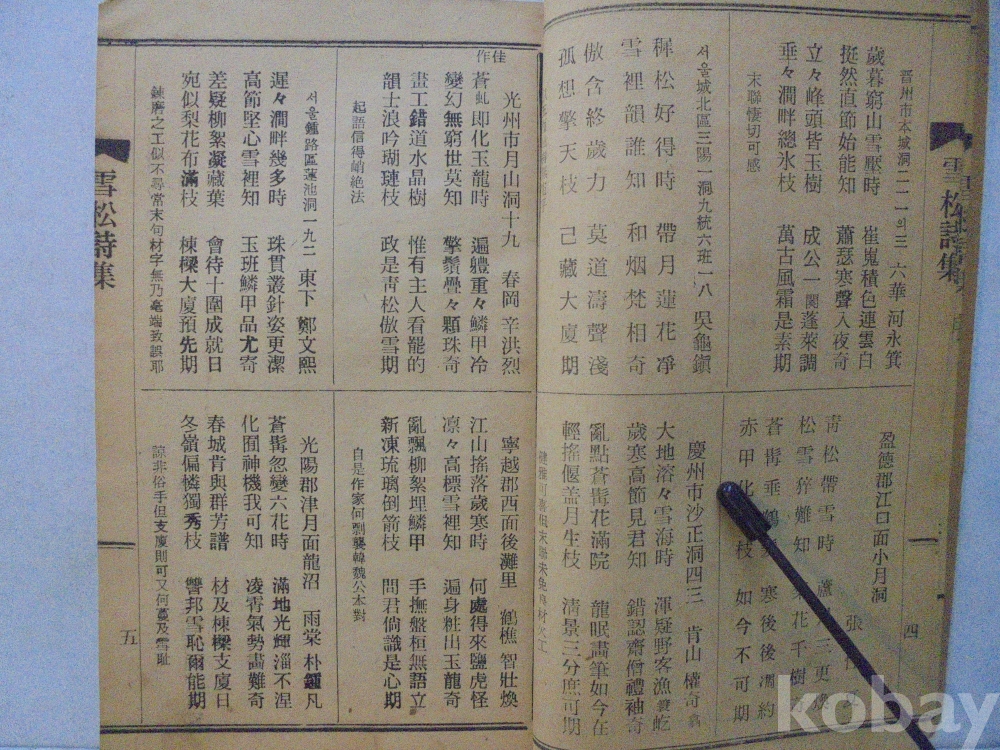 雪松詩集
四
晋州市本城洞二一一의三 六華 河永箕
歲暮窮山雪壓時 崔嵬積色連雲白
挺然直節始能知 蕭瑟寒聲入夜奇
立々峰頭皆玉樹 成公一闋蓬萊調
垂々澗畔總氷枝 萬古風霜是素期
末聯悽切可感
盈德郡江口面小月洞
靑松帶雪時
松雪猝難知 花千樹
蒼髯垂 寒後後凋約
赤甲化 枝 如今不可期
서울城北區三陽一洞九統六班一八 吳龜鎭
穉松好得時 帶月蓮花凈
雪裡韻誰知 和烟梵相奇
傲含終歲力 莫道濤聲淺
孤想擎天枝 己藏大廈期
慶州市沙正洞四三 肯山 權奇
大地溶々雪海時 渾疑野客漁簑屹
歲寒高節見君知 錯認齋僧禮袖奇
亂點蒼髯花滿院 龍眠畵筆如今在
輕搖偃盖月生枝 淸景三分庶可期
佳作
光州市月山洞十九 春岡 辛洪烈
蒼虬即化玉龍時 遍軆重々鱗甲冷
變幻無窮世莫知 擎鬚疊々顆珠奇
畫工錯道水晶樹 惟有主人看罷的
韻士浪吟瑚璉枝 政是靑松傲雪期
起語信得峭絶法
寧越郡西面後灘里 鶴樵 智壯煥
江山搖落歲寒時 何處得來鹽虎怪
凛々高標雪裡知 遍身粧出玉龍奇
亂飄柳絮埋鱗甲 手撫盤桓無語立
新凍琉璃倒箭枝 問君倘識是心期
自是作家何剽襲韓魏公本對
서울鍾路區蓮池洞一九二 東下 鄭文熙
遲々澗畔幾多時 珠貫叢針姿更潔
高節堅心雪裡知 玉班鱗甲品尤寄
差疑柳絮凝藏葉 會待十圍成就日
宛似梨花布滿枝 棟樑大廈預先期
鍊磨之工似不尋常末句材字無乃毫端致誤耶
光陽郡津月面龍沼 雨棠 朴鍾凡
蒼髯忽變六花時 滿地光輝淄不涅
化囿神機我可知 凌霄氣勢畵難奇
春城肯與群芳譜 材及棟樑支廈日
冬嶺偏憐獨秀枝 讐邦雪恥爾能期
諒非俗手但支廈則可又何蔓及雪恥
雪松詩集
五
kobay